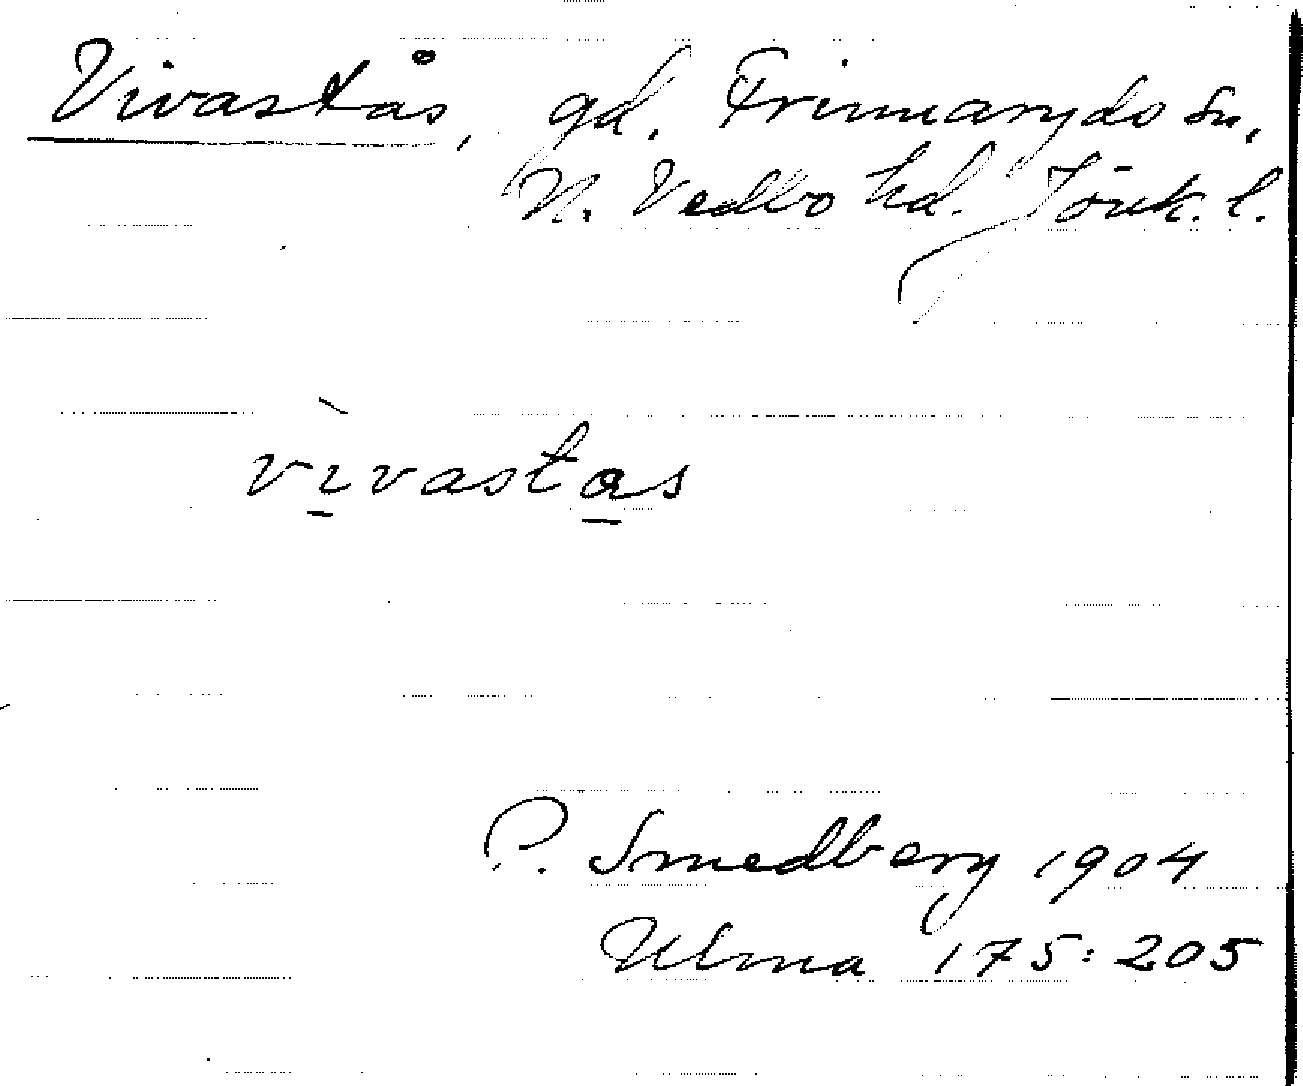 Vivastås, gd. Frinnaryds sn,
N. Vedbo hd. Jönk. l.
vìvastas
P. Smedberg 1904
Ulma 175:205